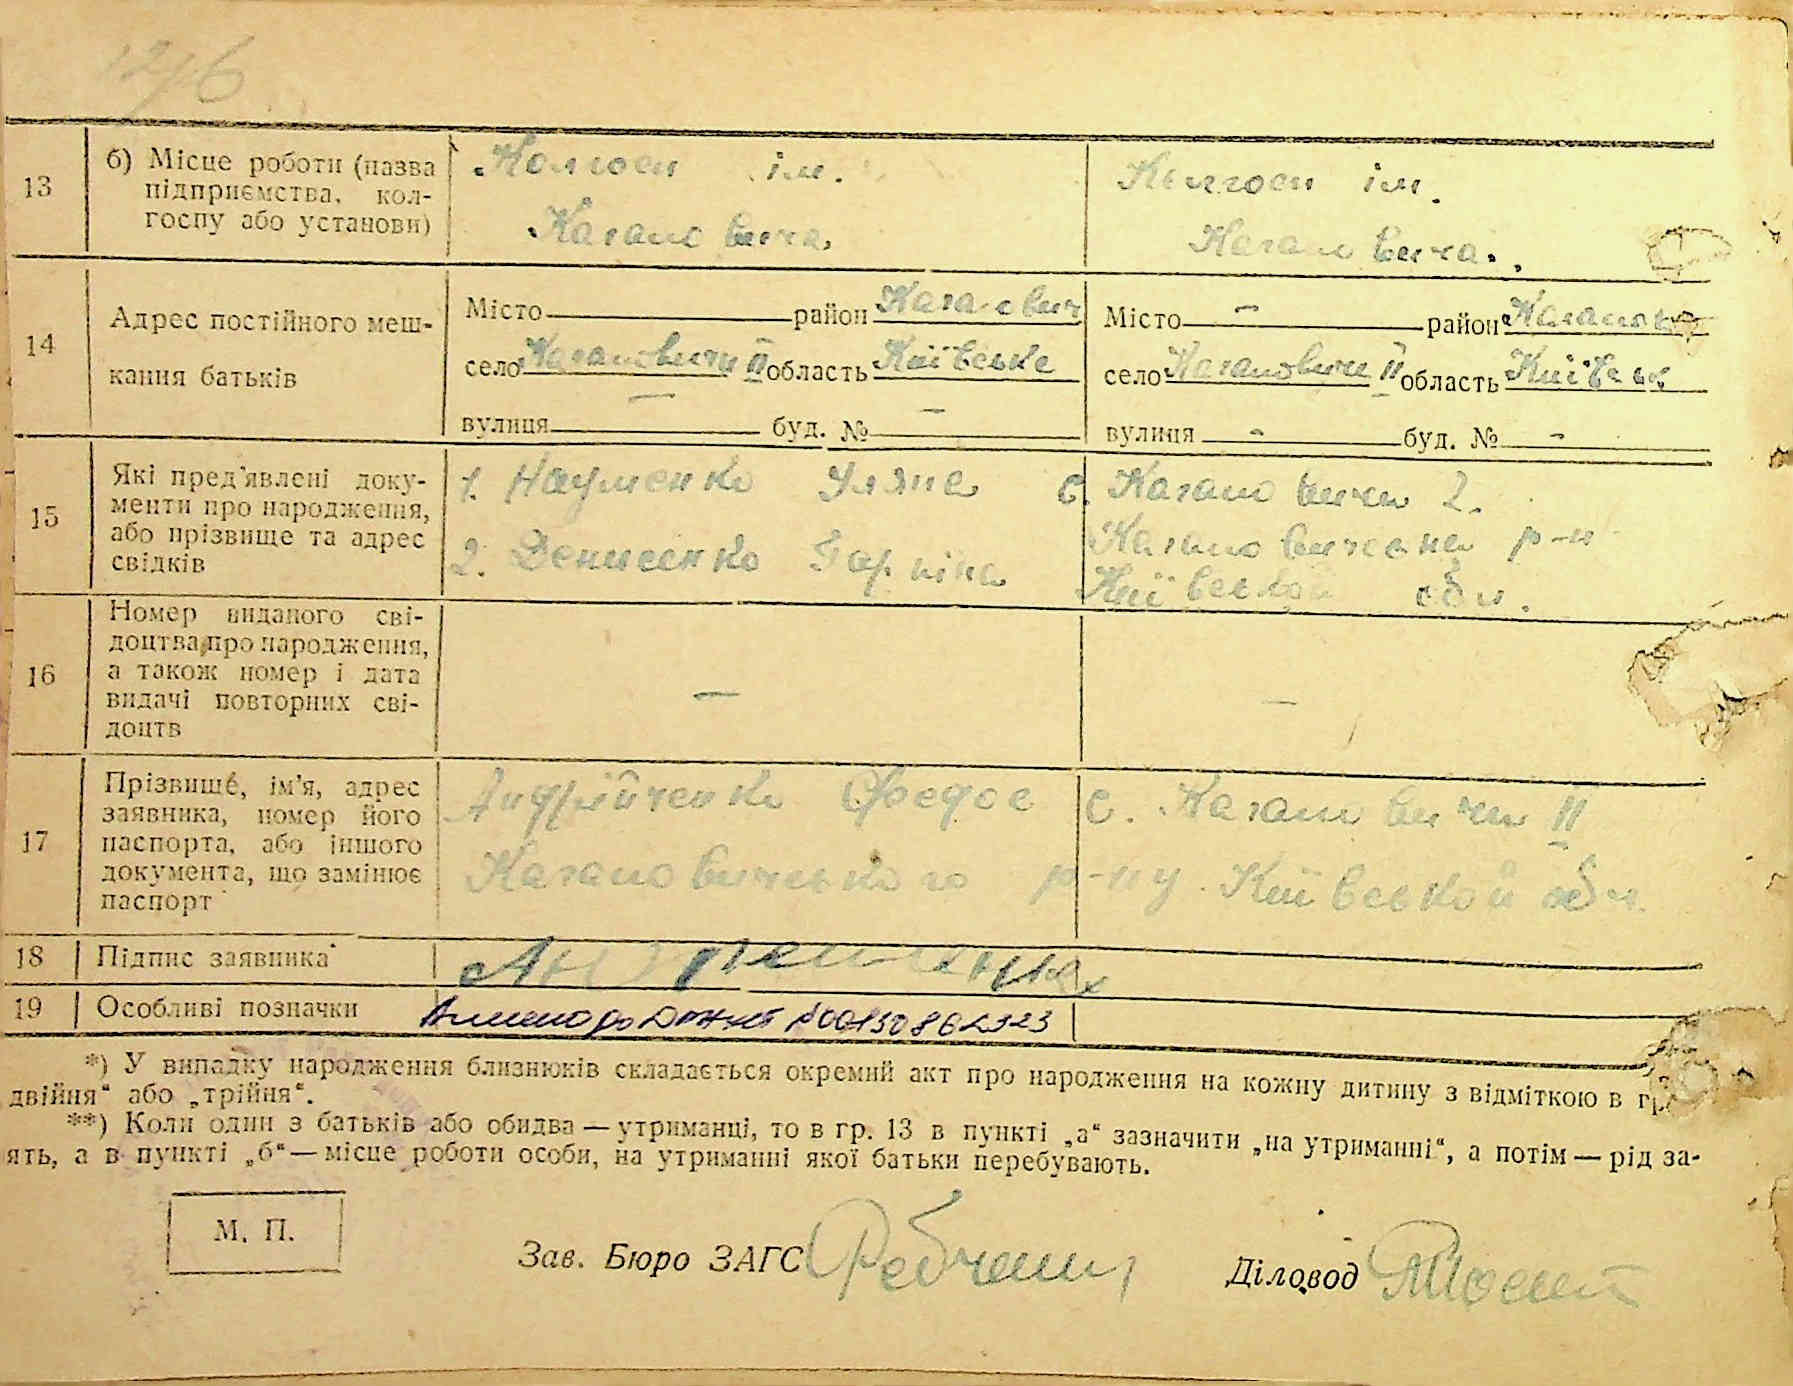 1276
13
б) Місце роботи (назва
підприємства, кол-
госпу або установи)
Колгосп ім.
Кагановича.
Колгосп ім.
Кагановича.
14
Адрес постійного меш-
кання батьків
Місто район Каганович
село Кагановичи II область Київське
вулиця — буд. № —
Місто — район Каганов
село Кагановичи II область Київськ
вулиця — буд. № —
15
Які пред'явлені доку-
менти про народження,
або прізвище та адрес
свідків
1. Науменко Уляна с. Кагановичи 2.
2. Денисенко Гарпіна Кагановичевна р-н
Київськой обл.
16
Номер виданого сві-
доцтва про народження,
а також номер і дата
видачі повторних сві-
доцтв
— —
17
Прізвище, ім'я, адрес
заявника, номер його
паспорта, або іншого
документа, що замінює
паспорт
Андрійченко Федос с. Кагановичи II
Кагановичського р-ну Київськой обл.
18 Підпис заявника
19 Особливі позначки
*) У випадку народження близнюків складається окремий акт про народження на кожну дитину з відміткою в гр.
двійня“ або „трійня“.
**) Коли один з батьків або обидва — утриманці, то в гр. 13 в пункті „а“ зазначити „на утриманні“, а потім — рід за-
ять, а в пункті „б“ — місце роботи особи, на утриманні якої батьки перебувають.
М. П.
Зав. Бюро ЗАГС
Діловод